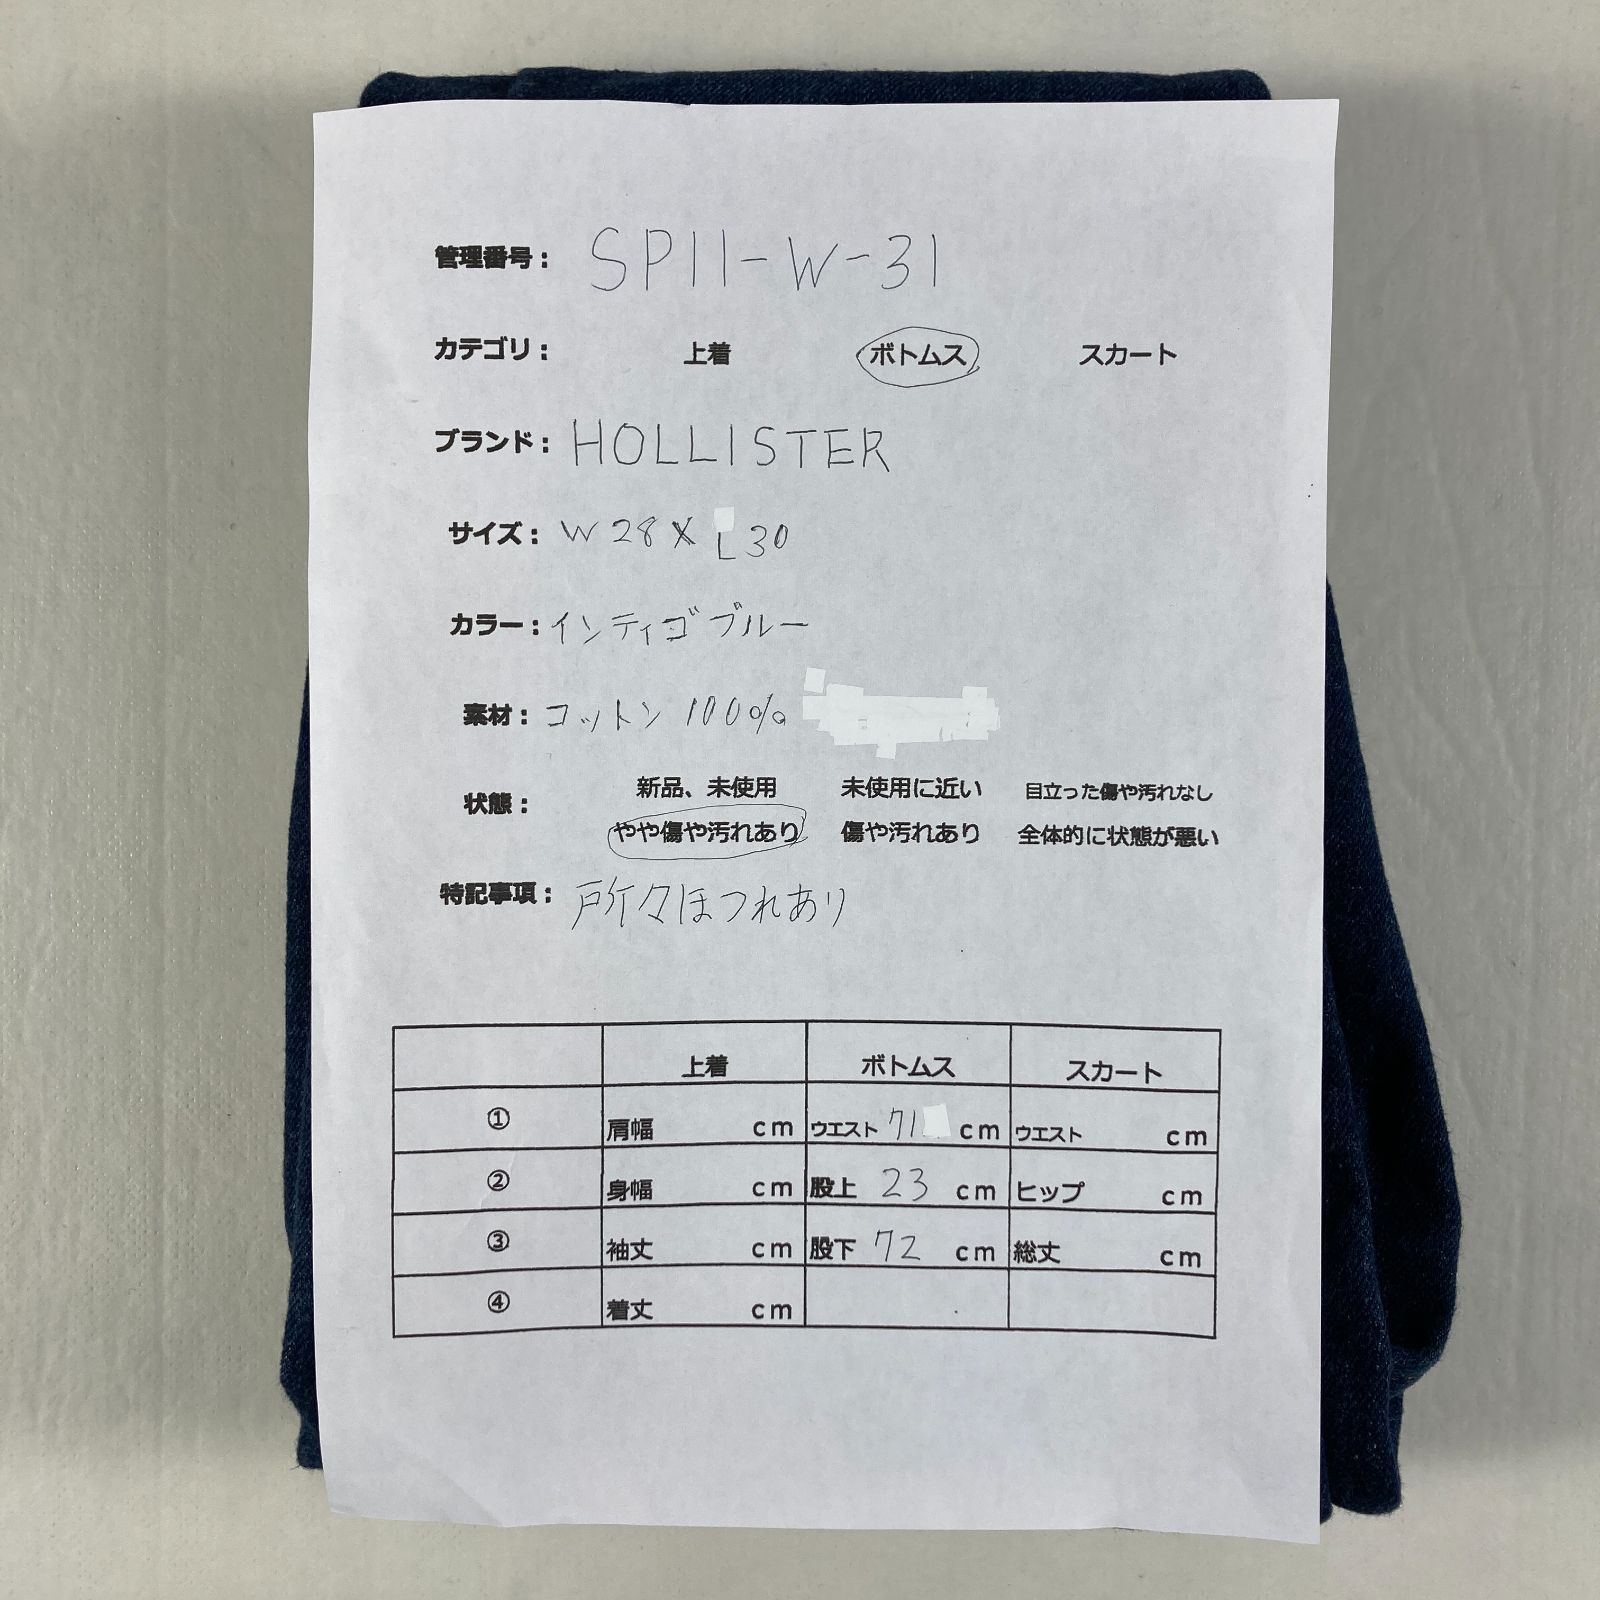 管理番号: SP11-W-31
カテゴリ: 上着 ボトムス スカート
ブランド: HOLLISTER
サイズ: W28×L30
カラー: インディゴブルー
素材: コットン 100%
状態: 新品、未使用 未使用に近い 目立った傷や汚れなし
やや傷や汚れあり 傷や汚れあり 全体的に状態が悪い
特記事項: 所々ほつれあり
上着 ボトムス スカート
① 肩幅 cm ウエスト 71 cm ウエスト cm
② 身幅 cm 股上 23 cm ヒップ cm
③ 袖丈 cm 股下 72 cm 総丈 cm
④ 着丈 cm